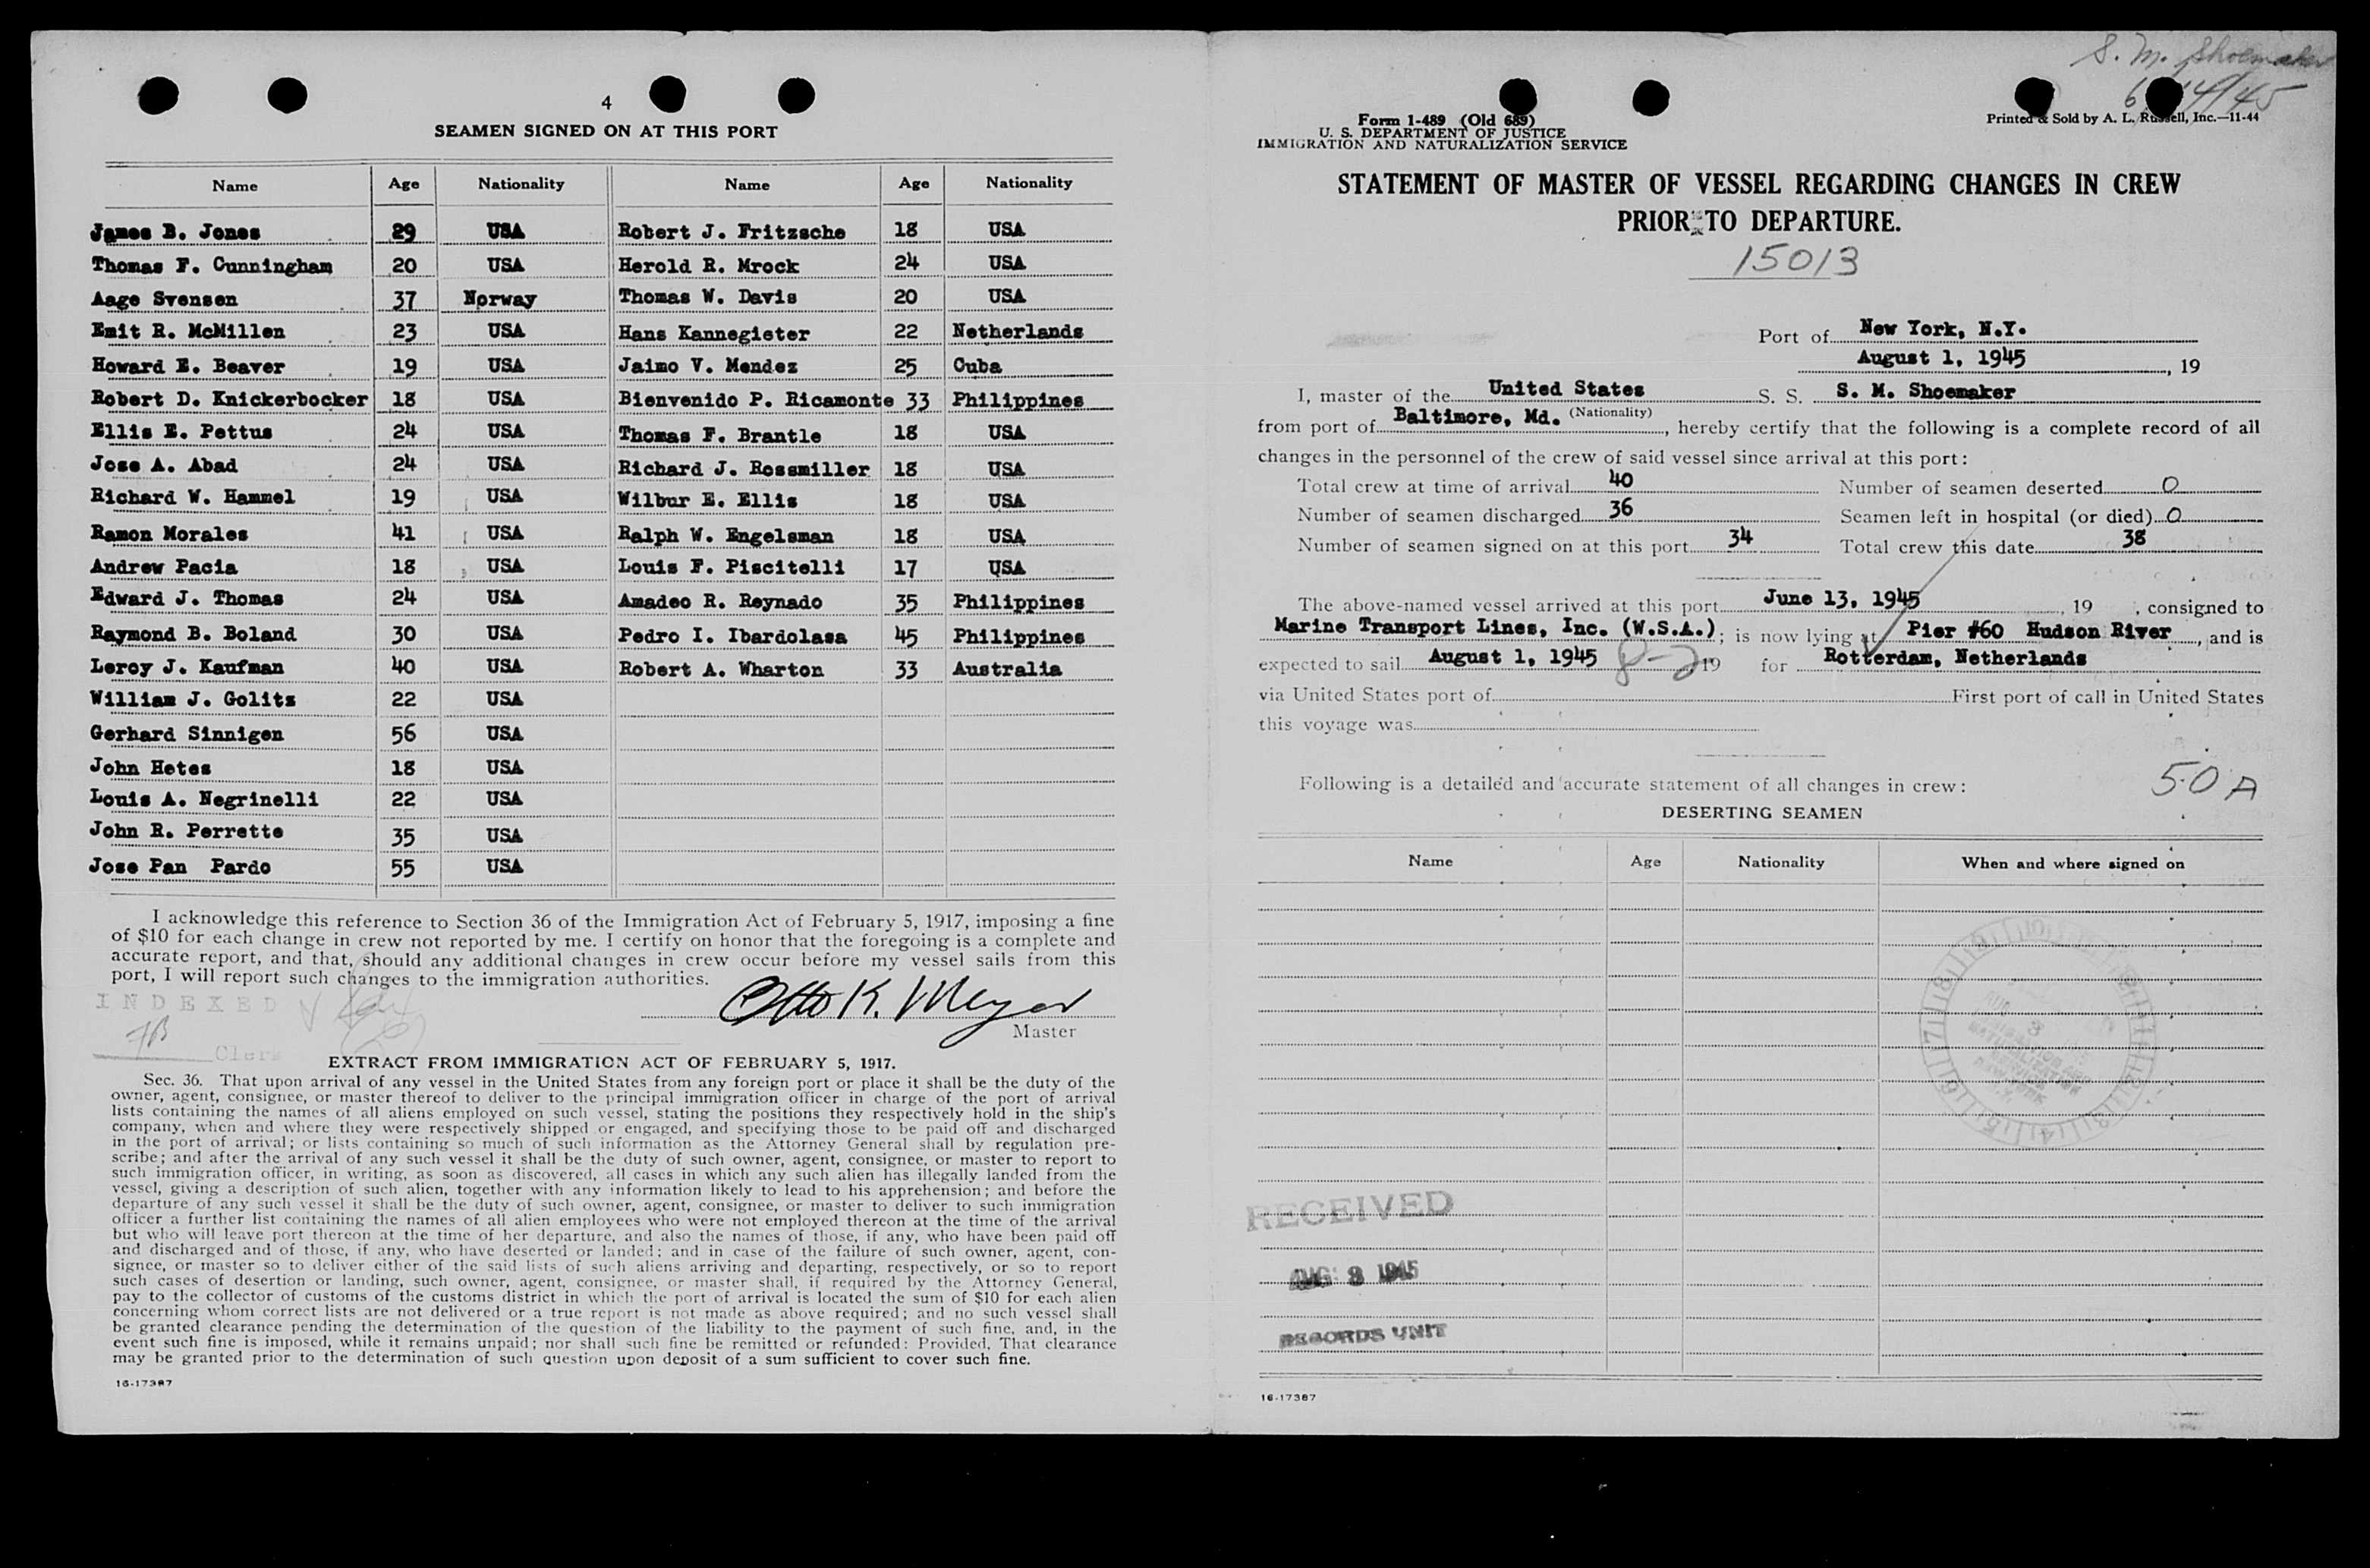 4
SEAMEN SIGNED ON AT THIS PORT
Name Age Nationality Name Age Nationality
James B. Jones 29 USA Robert J. Fritzsche 18 USA
Thomas F. Cunningham 20 USA Herold R. Mrock 24 USA
Aage Svensen 37 Norway Thomas W. Davis 20 USA
Emit R. McMillen 23 USA Hans Kannegieter 22 Netherlands
Howard E. Beaver 19 USA Jaimo V. Mendez 25 Cuba
Robert D. Knickerbocker 18 USA Bienvenido P. Ricamonte 33 Philippines
Ellis E. Pettus 24 USA Thomas F. Brantle 18 USA
Jose A. Abad 24 USA Richard J. Rossmiller 18 USA
Richard W. Hammel 19 USA Wilbur E. Ellis 18 USA
Ramon Morales 41 USA Ralph W. Engelsman 18 USA
Andrew Pacia 18 USA Louis F. Piscitelli 17 USA
Edward J. Thomas 24 USA Amadeo R. Reynado 35 Philippines
Raymond B. Boland 30 USA Pedro I. Ibardolasa 45 Philippines
Leroy J. Kaufman 40 USA Robert A. Wharton 33 Australia
William J. Golitz 22 USA
Gerhard Sinnigen 56 USA
John Hetes 18 USA
Louis A. Negrinelli 22 USA
John R. Perrette 35 USA
Jose Pan Pardo 55 USA
I acknowledge this reference to Section 36 of the Immigration Act of February 5, 1917, imposing a fine
of $10 for each change in crew not reported by me. I certify on honor that the foregoing is a complete and
accurate report, and that, should any additional changes in crew occur before my vessel sails from this
port, I will report such changes to the immigration authorities.
INDEXED
Otto K. Meyer
Master
JB Clerk
EXTRACT FROM IMMIGRATION ACT OF FEBRUARY 5, 1917.
Sec. 36. That upon arrival of any vessel in the United States from any foreign port or place it shall be the duty of the
owner, agent, consignee, or master thereof to deliver to the principal immigration officer in charge of the port of arrival
lists containing the names of all aliens employed on such vessel, stating the positions they respectively hold in the ship's
company, when and where they were respectively shipped or engaged, and specifying those to be paid off and discharged
in the port of arrival; or lists containing so much of such information as the Attorney General shall by regulation pre-
scribe; and after the arrival of any such vessel it shall be the duty of such owner, agent, consignee, or master to report to
such immigration officer, in writing, as soon as discovered, all cases in which any such alien has illegally landed from the
vessel, giving a description of such alien, together with any information likely to lead to his apprehension; and before the
departure of any such vessel it shall be the duty of such owner, agent, consignee, or master to deliver to such immigration
officer a further list containing the names of all alien employees who were not employed thereon at the time of the arrival
but who will leave port thereon at the time of her departure, and also the names of those, if any, who have been paid off
and discharged and of those, if any, who have deserted or landed; and in case of the failure of such owner, agent, con-
signee, or master so to deliver either of the said lists of such aliens arriving and departing, respectively, or so to report
such cases of desertion or landing, such owner, agent, consignee, or master shall, if required by the Attorney General,
pay to the collector of customs of the customs district in which the port of arrival is located the sum of $10 for each alien
concerning whom correct lists are not delivered or a true report is not made as above required; and no such vessel shall
be granted clearance pending the determination of the question of the liability to the payment of such fine, and, in the
event such fine is imposed, while it remains unpaid; nor shall such fine be remitted or refunded: Provided, That clearance
may be granted prior to the determination of such question upon deposit of a sum sufficient to cover such fine.
16-17387
S. M. Shoemaker
6/14/45
Form 1-489 (Old 689)
U. S. DEPARTMENT OF JUSTICE
IMMIGRATION AND NATURALIZATION SERVICE
Printed & Sold by A. L. Russell, Inc.—11-44
STATEMENT OF MASTER OF VESSEL REGARDING CHANGES IN CREW
PRIOR TO DEPARTURE.
15013
Port of New York, N.Y.
August 1, 1945, 19
I, master of the United States S. S. S. M. Shoemaker
(Nationality)
from port of Baltimore, Md., hereby certify that the following is a complete record of all
changes in the personnel of the crew of said vessel since arrival at this port:
Total crew at time of arrival 40 Number of seamen deserted 0
Number of seamen discharged 36 Seamen left in hospital (or died) 0
Number of seamen signed on at this port 34 Total crew this date 38
The above-named vessel arrived at this port June 13, 1945, 19 , consigned to
Marine Transport Lines, Inc. (W.S.A.); is now lying at Pier #60 Hudson River, and is
expected to sail August 1, 1945 8-2 19 for Rotterdam, Netherlands
via United States port of First port of call in United States
this voyage was
Following is a detailed and accurate statement of all changes in crew:
50A
DESERTING SEAMEN
Name Age Nationality When and where signed on
RECEIVED
AUG 3 1945
RECORDS UNIT
16-17387